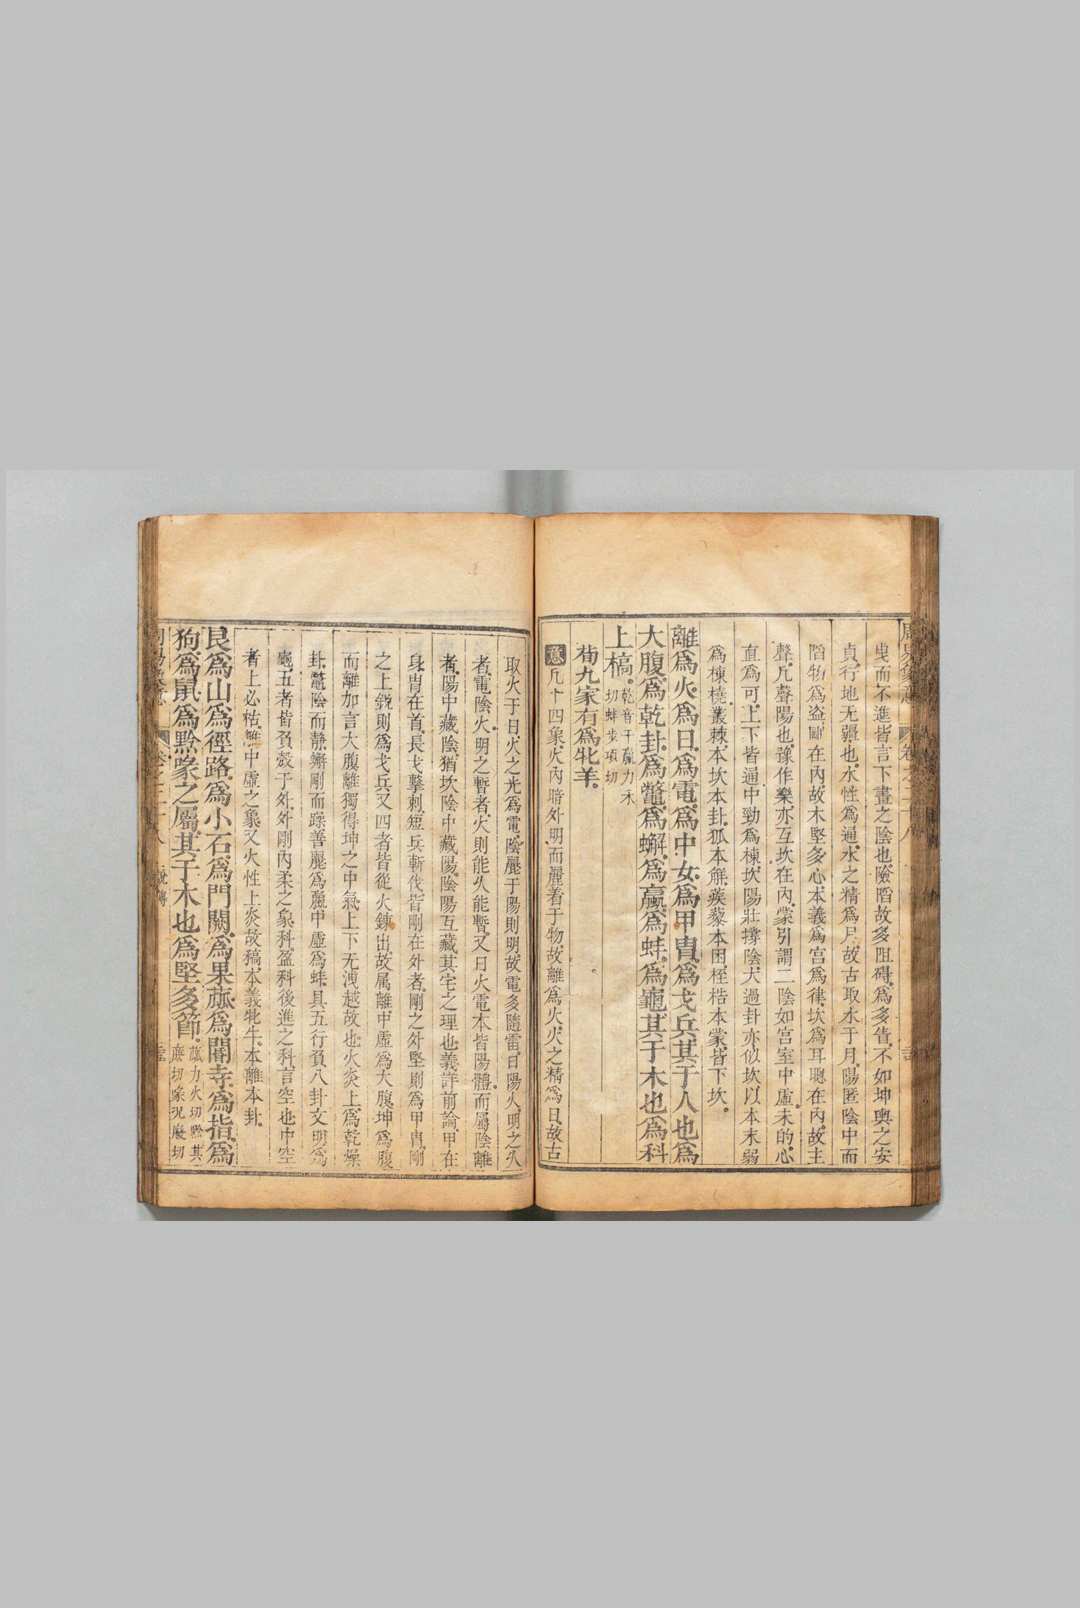 曳而不進皆言下畫之陰也險陷故多阻礙爲多眚不如坤輿之安
貞行地无疆也水性爲通水之精爲月故古取水于月陽匿陰中而
陷物爲盗中在内故木堅多心本義爲宮爲律坎爲耳聰在内故主
聲凡聲陽也豫作樂亦互坎在内蒙引謂二陰如宮室中虛未的心
直爲可上下皆通中勁爲棟坎陽壯撐陰大過卦亦似坎以本末弱
爲棟橈叢棘本坎本卦狐本解蒺藜本困桎梏本蒙皆下坎
離爲火爲日爲電爲中女爲甲冑爲戈兵其于人也爲
大腹爲乾卦爲鼈爲蠏爲蠃爲蚌爲龜其于木也爲科
上槁乾音干蠃力禾
切蚌步項切
荀九家有爲牝羊
意凡十四象火内暗外明而麗着于物故離爲火火之精爲日故古
取火于日火之光爲電陰麗于陽則明故電多隨雷日陽火明之久
者電陰火明之暫者火則能久能暫又日火電本皆陽體而屬陰離
者陽中藏陰猶坎陰中藏陽陰陽互藏其宅之理也義詳前論甲在
身冑在首長戈擊刺短兵斬伐皆剛在外者剛之外堅則爲甲冑剛
之上銳則爲戈兵又四者皆從火鍊出故屬離中虛爲大腹坤爲腹
而離加言大腹離獨得坤之中氣上下无洩越故也火炎上爲乾燥
卦鼈陰而静蠏剛而躁善麗爲麗中虛爲蚌具五行負八卦文明爲
龜五者皆負殼于外外剛内柔之象科盈科後進之科言空也中空
者上必枯離中虛之象又火性上炎故槁本義牝牛本離本卦
艮爲山爲徑路爲小石爲門闕爲果蓏爲閽寺爲指爲
狗爲鼠爲黔喙之屬其于木也爲堅多節蓏力火切黔其
廉切喙况廢切